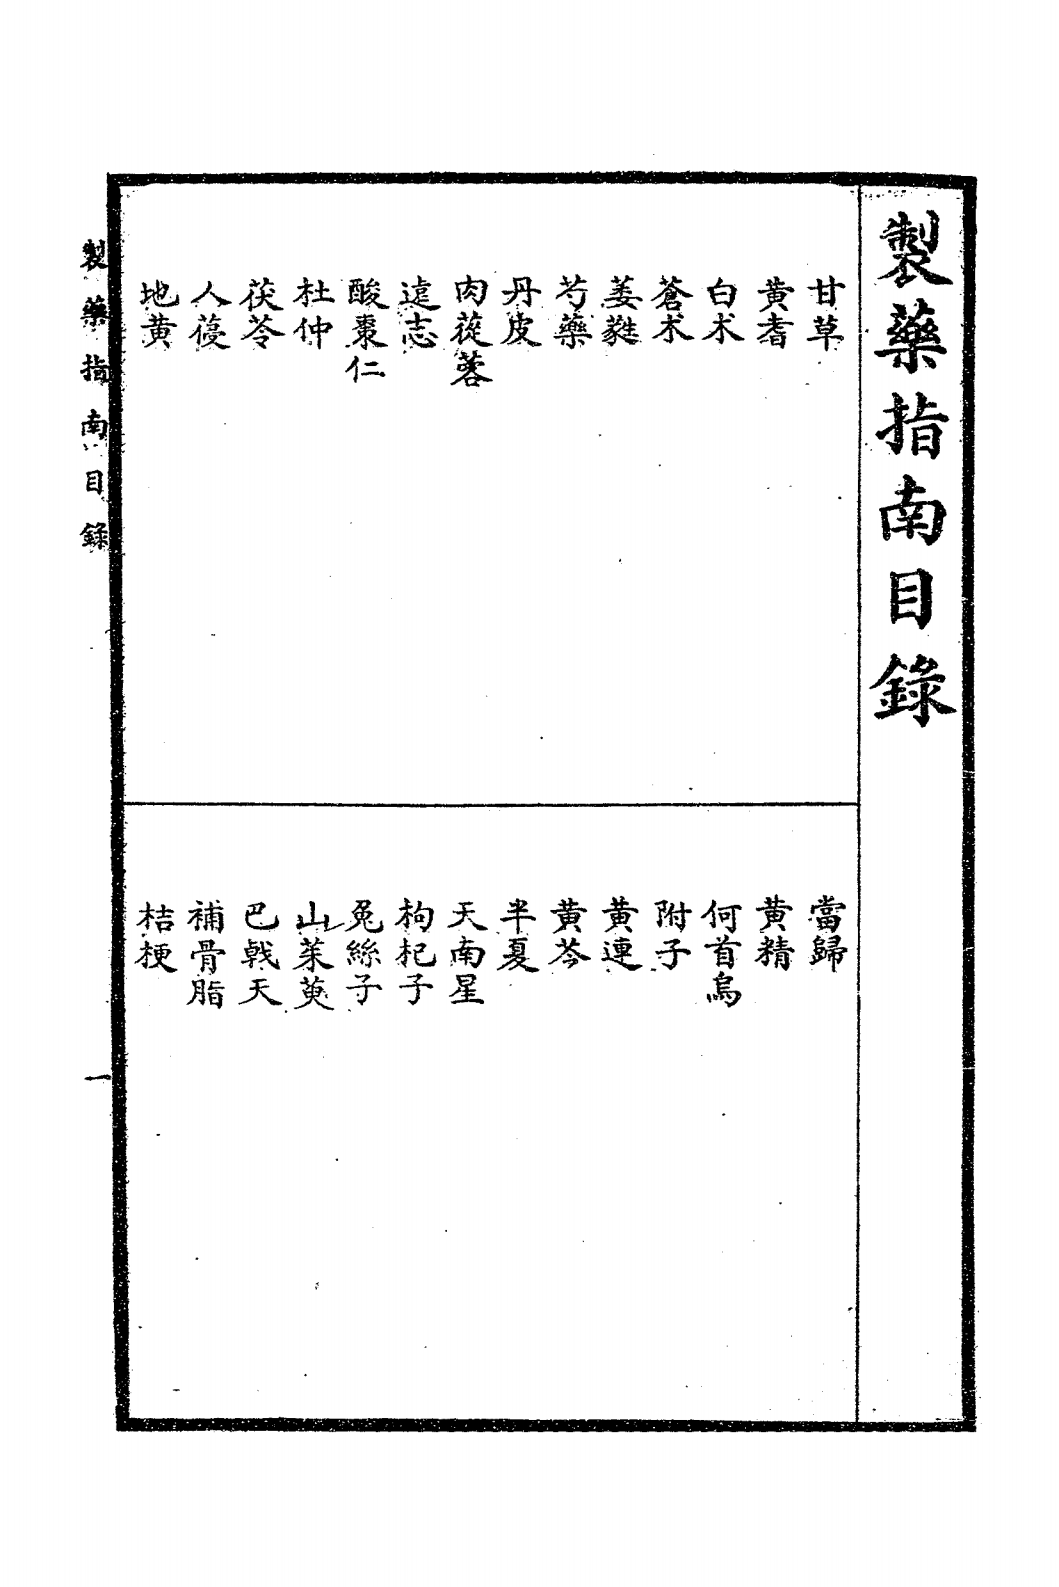 製藥指南目錄
甘草
黃耆
白朮
蒼朮
萎蕤
芍藥
丹皮
肉蓯蓉
遠志
酸棗仁
杜仲
茯苓
人蓡
地黃
當歸
黃精
何首烏
附子
黃連
黃芩
半夏
天南星
枸杞子
兔絲子
山茱萸
巴戟天
補骨脂
桔梗
製藥指南目錄
一